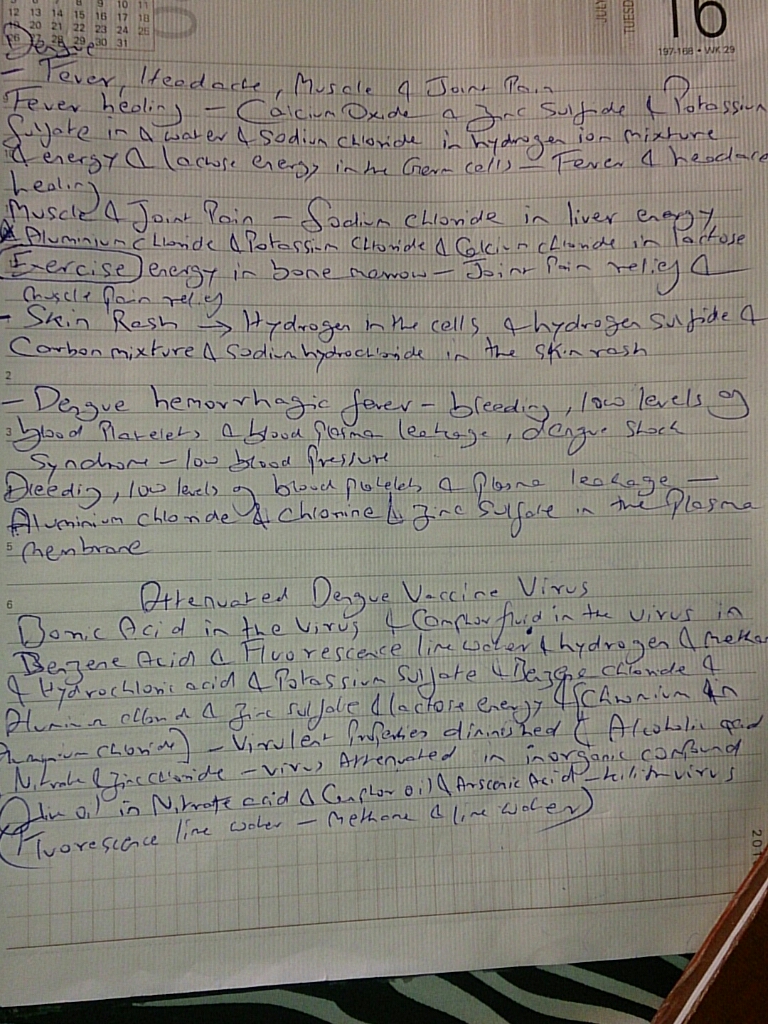 5 6 7 8 9 10 11
12 13 14 15 16 17 18
19 20 21 22 23 24 25
26 27 28 29 30 31
JULY
TUESD
16
197-168 • WK 29
Dengue
- Fever, Headache, Muscle & Joint Pain
Fever healing - Calcium Oxide & Zinc Sulfide & Potassium
Sulfate in a water & Sodium chloride in hydrogen ion mixture
& energy & lactose energy in the Germ cells - Fever & headache
healing
Muscle & Joint Pain - Sodium chloride in liver energy
& Aluminium chloride & Potassium Chloride & Calcium chloride in lactose
Exercise energy in bone marrow - Joint Pain relief &
muscle pain relief
- Skin Rash → Hydrogen in the cells & hydrogen sulfide &
Carbon mixture & sodium hydrochloride in the skin rash
2
- Dengue hemorrhagic fever - bleeding, low levels of
3 blood Platelets & blood plasma leakage, dengue shock
Syndrome - low blood pressure
Bleeding, low levels of blood platelets & plasma leakage -
Aluminium chloride & Chlorine & Zinc Sulfate in the Plasma
5 membrane
6
Attenuated Dengue Vaccine Virus
Boric Acid in the virus & Camphor fluid in the virus in
Benzene Acid & Fluorescence lime water & hydrogen &
& Hydrochloric acid & Potassium Sulfate & chloride &
& Zinc sulfate & lactose energy & in
chloride] - Virulent Properties diminished & Alcoholic
Nitrate & Zinc chloride - virus Attenuated in inorganic compound
oil in Nitrate acid & Camphor oil & Arsenic Acid - kill the virus
(Fluorescence lime water - methane & lime water)
201